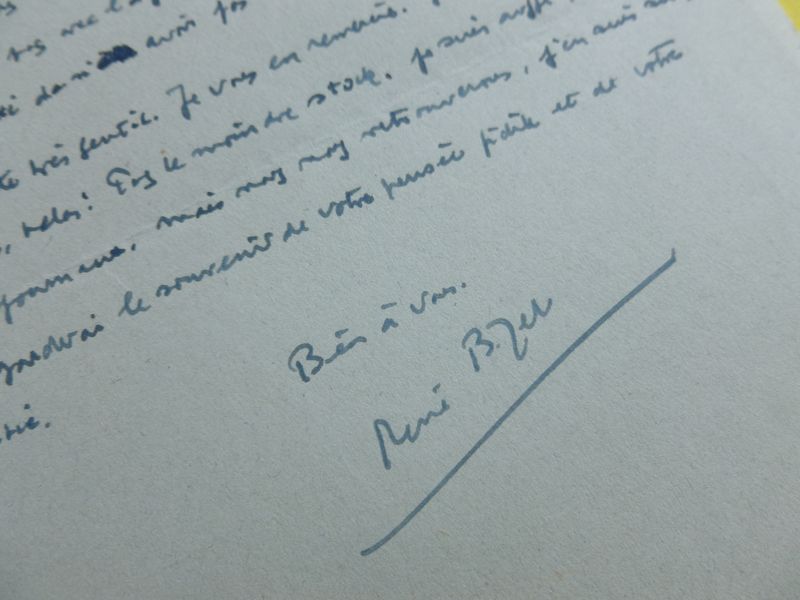 avec l'a
avoir pas
très gentil. Je vous en remercie.
hélas! Pas le moindre stock. Je suis aussi
journaux, mais nous nous retrouverons, j'en suis sûr,
garderai le souvenir de votre pensée fidèle et de votre
Bien à vous.
René Bizet